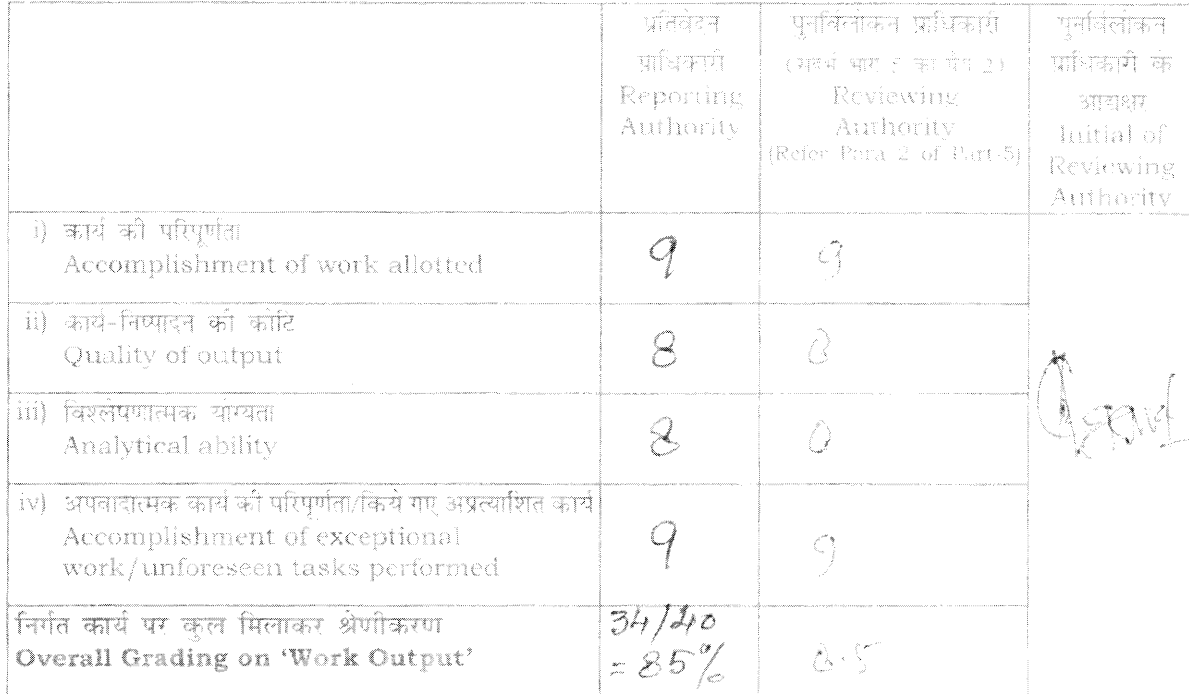 प्रतिवेदन
प्राधिकारी
Reporting
Authority
पुनर्विलोकन प्राधिकारी
(संदर्भ भाग 5 का पैरा 2)
Reviewing
Authority
(Refer Para 2 of Part-5)
पुनर्विलोकन
प्राधिकारी के
आद्यक्षर
Initial of
Reviewing
Authority
i) कार्य की परिपूर्णता
Accomplishment of work allotted
9
9
ii) कार्य-निष्पादन की कोटि
Quality of output
8
8
iii) विश्लेषणात्मक योग्यता
Analytical ability
8
8
iv) अपवादात्मक कार्य की परिपूर्णता/किये गए अप्रत्याशित कार्य
Accomplishment of exceptional
work/unforeseen tasks performed
9
9
निर्गत कार्य पर कुल मिलाकर श्रेणीकरण
Overall Grading on ‘Work Output’
34/40
= 85%
8.5